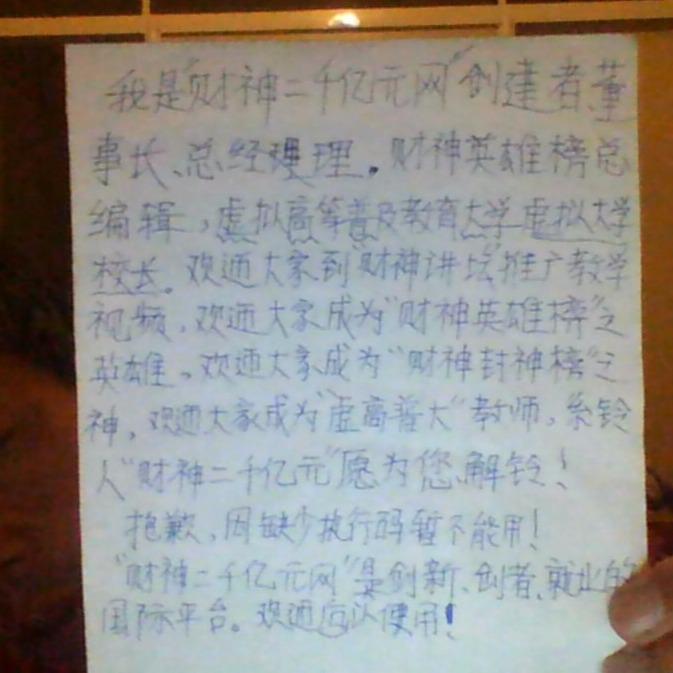 我是"财神二千亿元网"创建者、董
事长、总经理理。财神英雄榜总
编辑,虚拟高等普及教育大学虚拟大学
校长。欢迎大家到"财神讲坛"推广教学
视频,欢迎大家成为"财神英雄榜"之
英雄。欢迎大家成为"财神封神榜"之
神,欢迎大家成为"虚高普大"教师。系铃
人"财神二千亿元"愿为您解铃!
抱歉,因缺少执行码暂不能用!
"财神二千亿元网"是创新、创者、就业的
国际平台。欢迎使用!